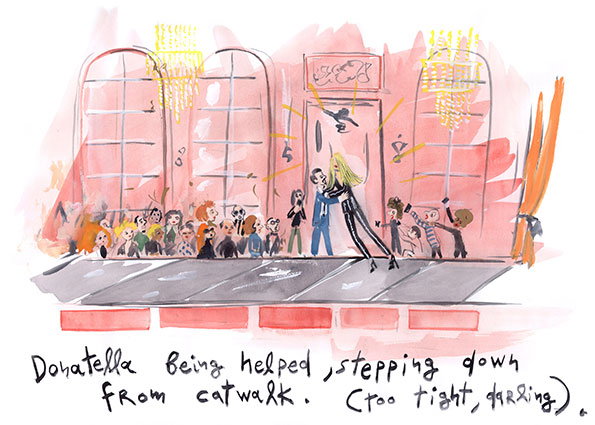 Donatella Being helped, stepping down
from catwalk. (too tight, darling).